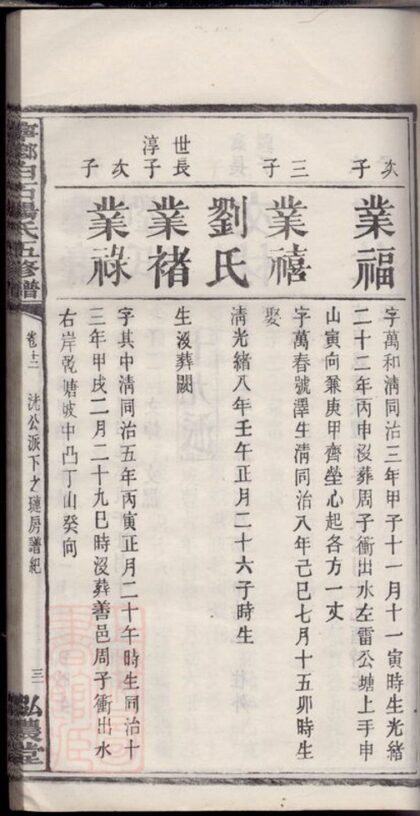 次子
業福
字萬和清同治三年甲子十一月十一寅時生光緒
二十二年丙申沒葬周子衝出水左雷公塘上手申
山寅向兼庚甲齊塋心起各方一丈
三子
業禧
字萬春號澤生清同治八年己巳七月十五卯時生
娶
劉氏
清光緒八年壬午正月二十六子時生
世淳長子
業褚
生沒葬闕
次子
業祿
字其中清同治五年丙寅正月二十午時生同治十
三年甲戌二月二十九巳時沒葬善邑周子衝出水
右岸乾塘坡中凸丁山癸向
寧鄉白石楊氏五修譜
卷十二
洗公派下之璉房譜紀
三
弘農堂